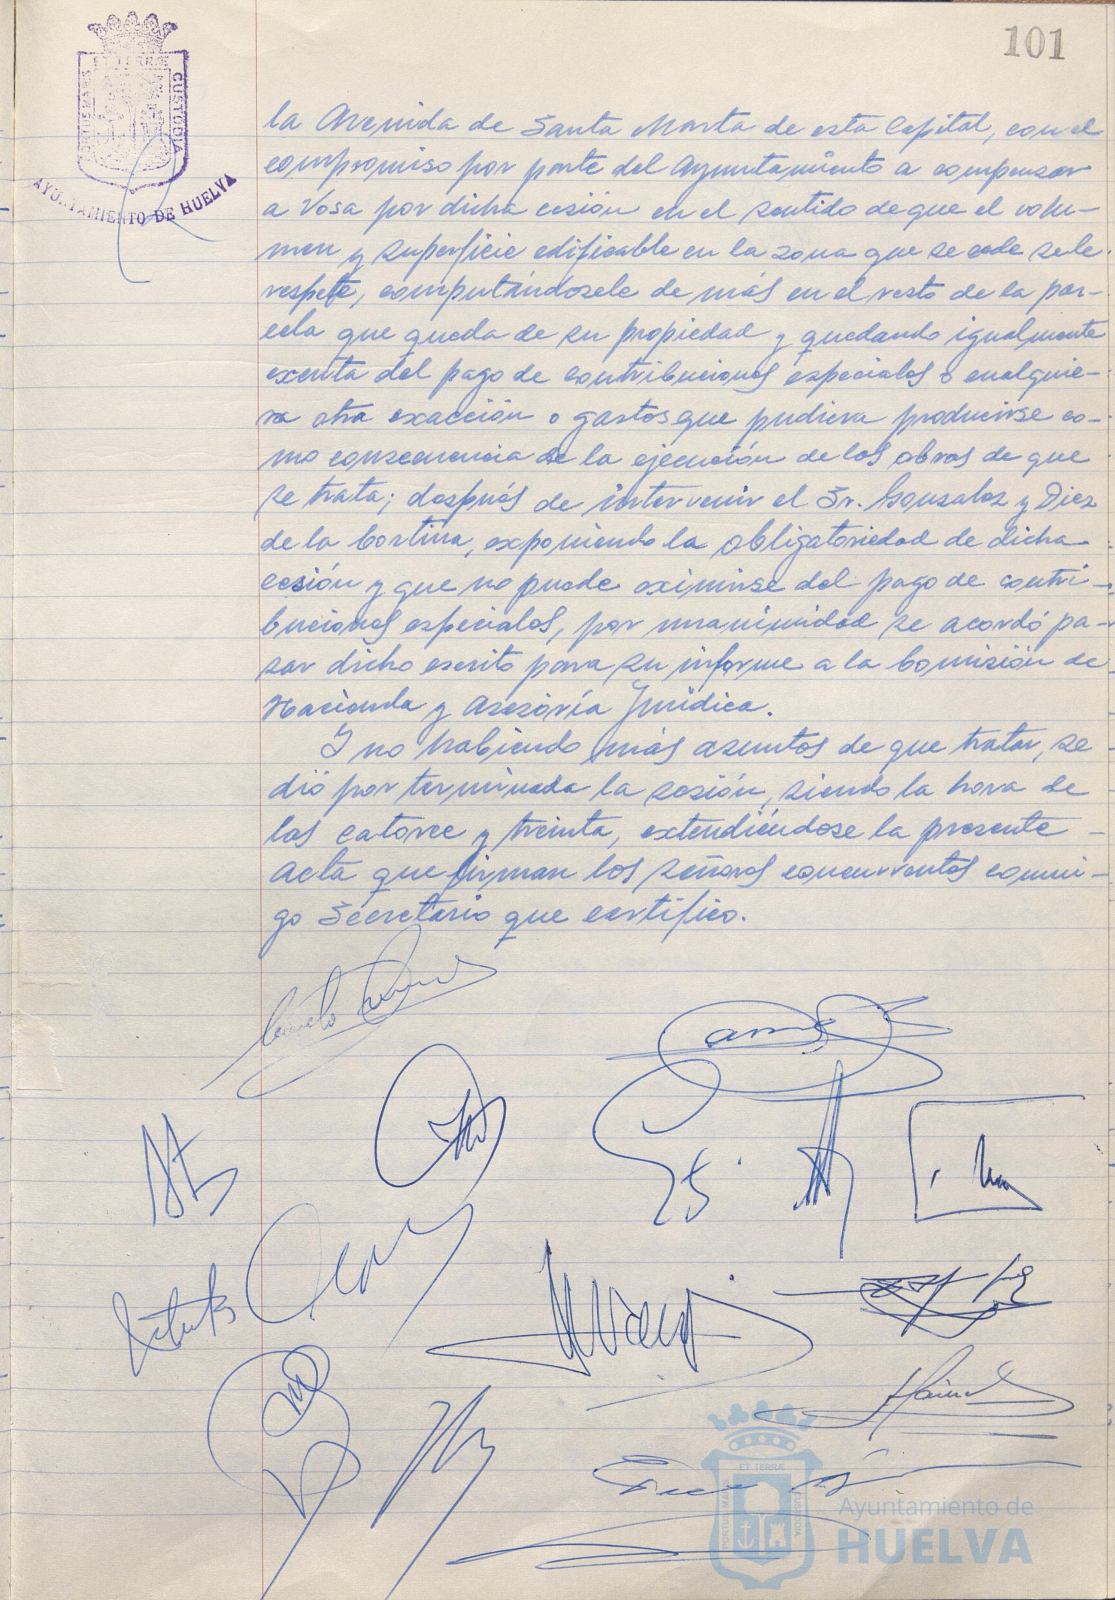 101
PORTUS MARIS
ET TERRÆ
CUSTODIA
AYUNTAMIENTO DE HUELVA
la Avenida de Santa Marta de esta Capital, con el
compromiso por parte del Ayuntamiento a compensar
a Vosa por dicha cesión en el sentido de que el volu-
men y superficie edificable en la zona que se cede se le
respete, computándosele de más en el resto de la par-
cela que queda de su propiedad y quedando igualmente
exenta del pago de contribuciones especiales o cualquie-
ra otra exacción o gastos que pudiera producirse co-
mo consecuencia de la ejecución de las obras de que
se trata; después de intervenir el Sr. Gonzalez y Diez
de la Cortina, exponiendo la obligatoriedad de dicha
cesión y que no puede eximirse del pago de contri-
buciones especiales, por unanimidad se acordó pa-
sar dicho escrito para su informe a la Comisión de
Hacienda y Asesoría Jurídica.
Y no habiendo más asuntos de que tratar, se
dió por terminada la sesión, siendo la hora de
las catorce y treinta, extendiéndose la presente
acta que firman los señores concurrentes conmi-
go Secretario que certifico.
PORTUS MARIS
ET TERRÆ
CUSTODIA
Ayuntamiento de
HUELVA